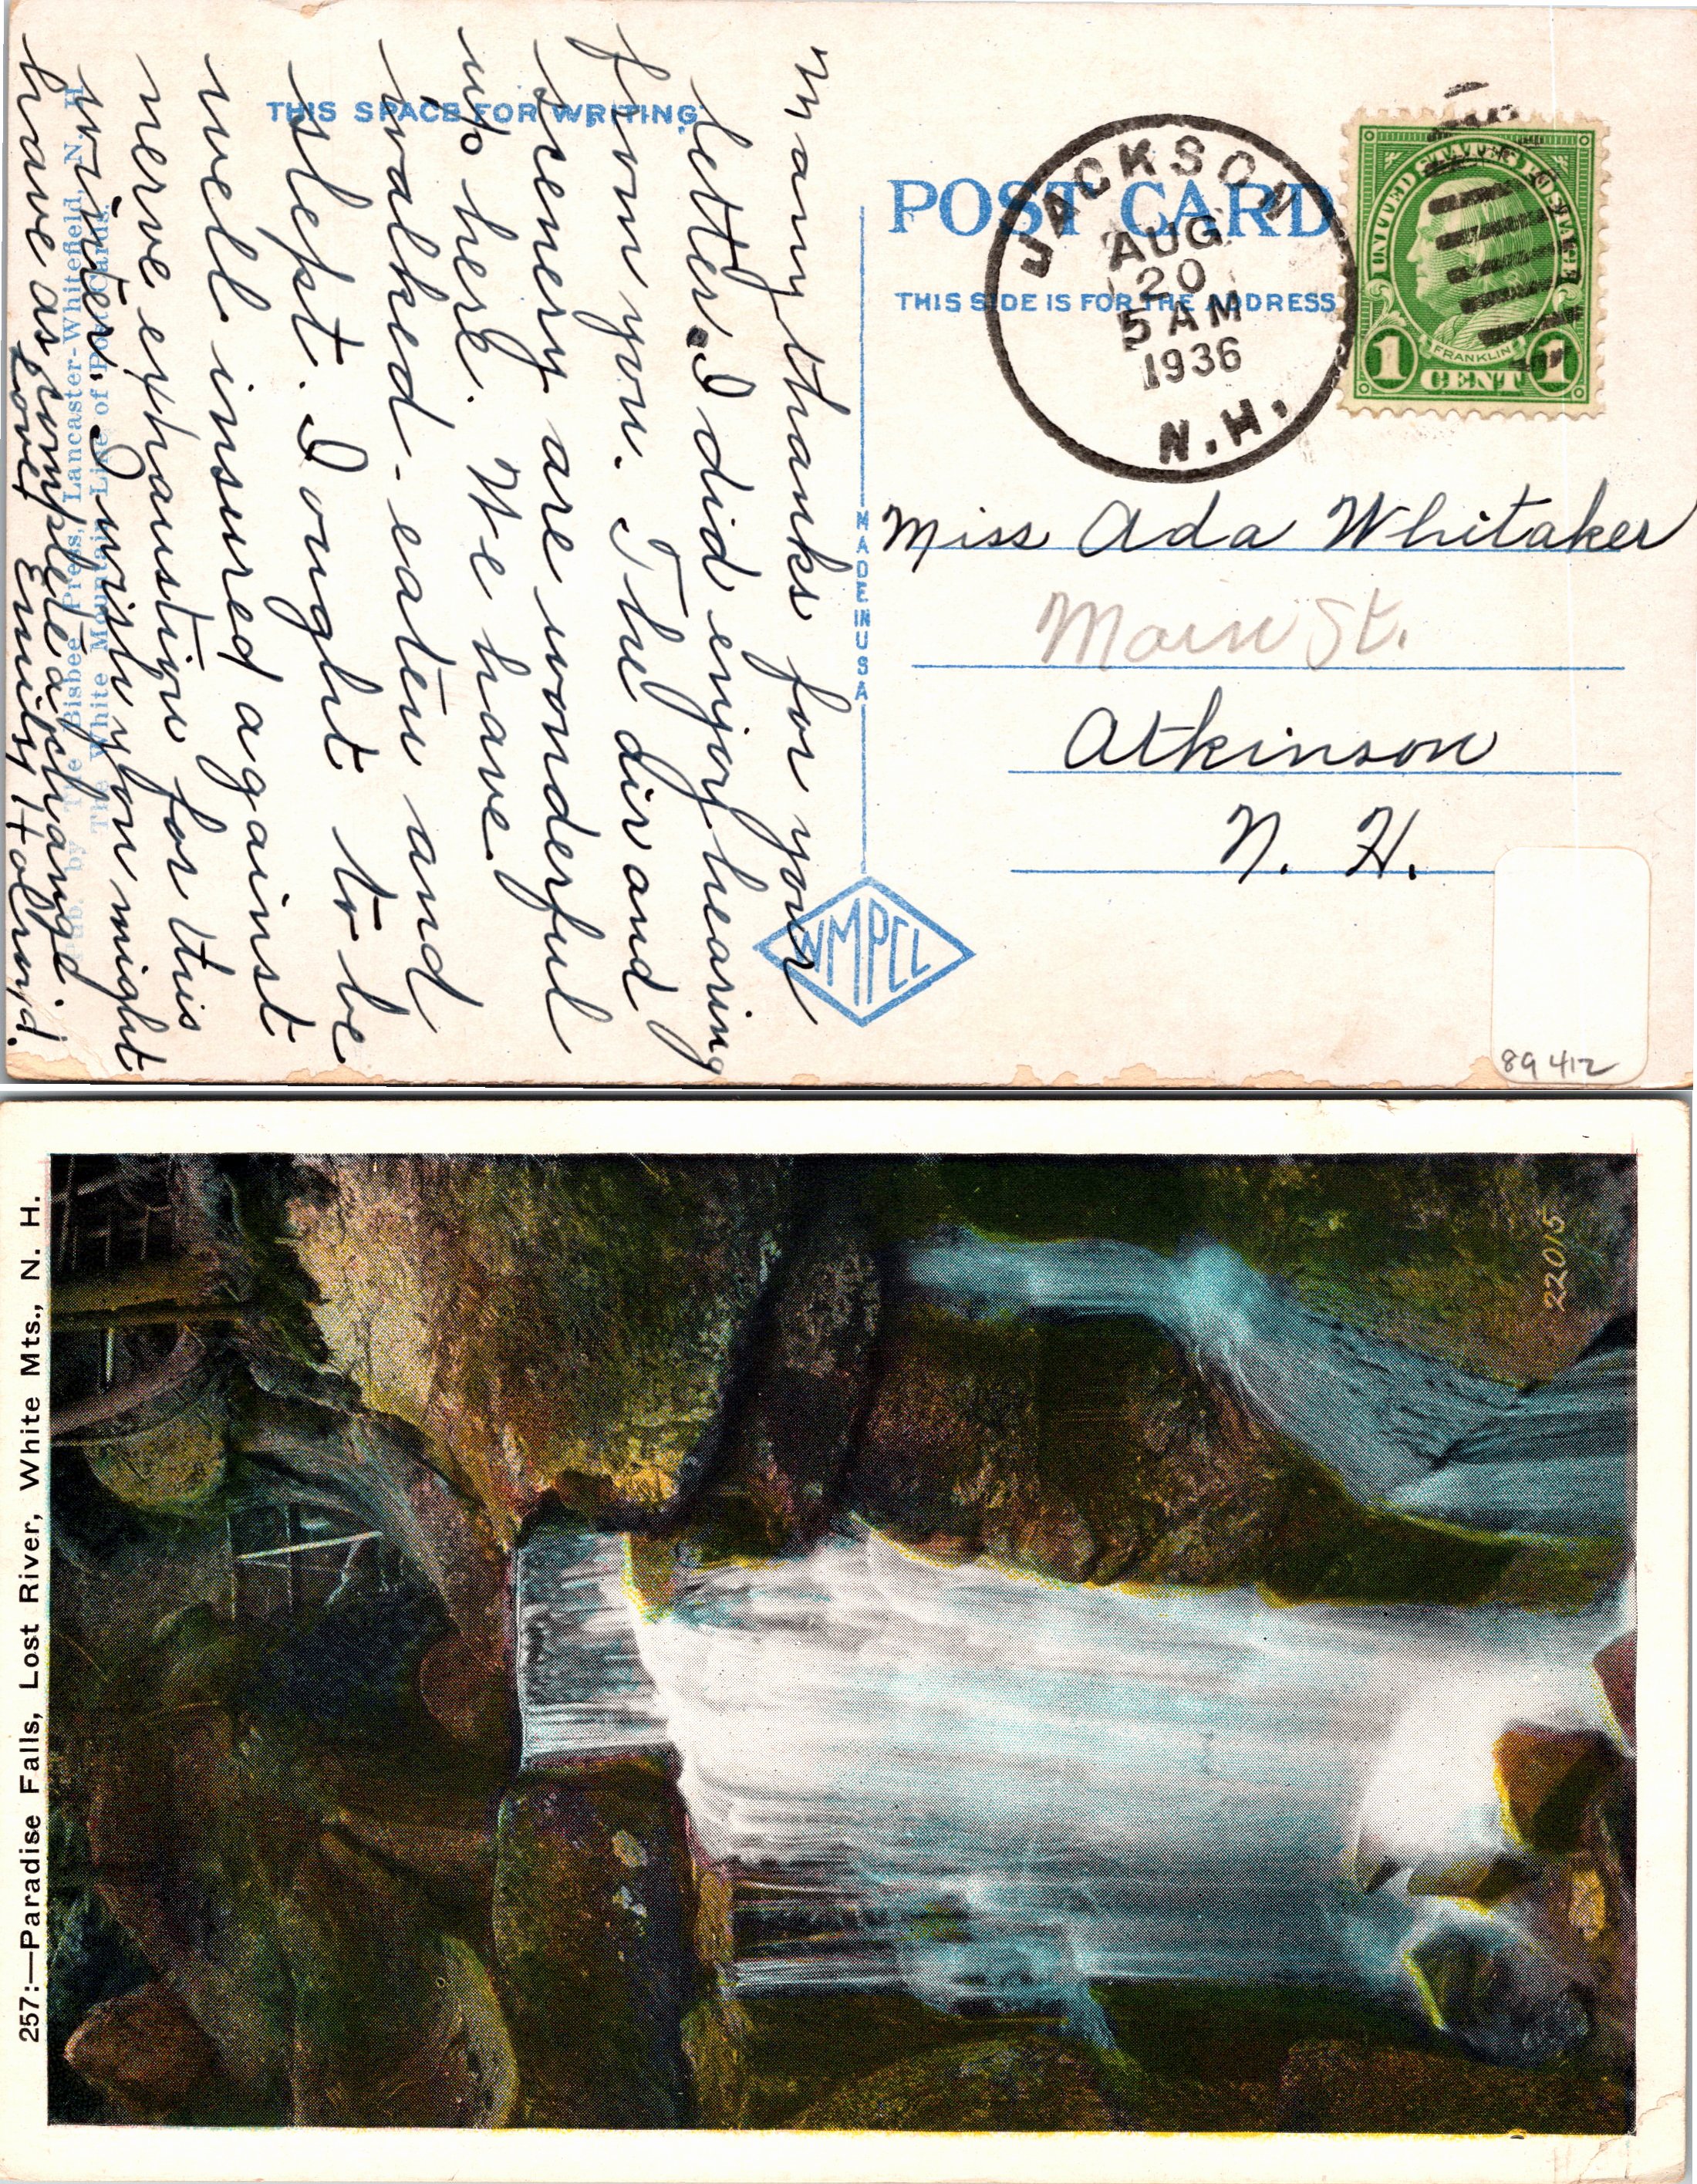 THIS SPACE FOR WRITING
Many thanks for your
letter. I did enjoy hearing
from you. The air and
scenery are wonderful
up here. We have
walked - eaten and
slept. I ought to be
well insured against
nerve exhaustion for this
winter. I wish you might
have as complete a change
Love, Emily Holroyd.
Pub. by The Bisbee Press, Lancaster-Whitefield, N. H.
The White Mountain Line of Post Cards.
MADE IN USA
WMPCL
POST CARD
THIS SIDE IS FOR THE ADDRESS
JACKSON
AUG
20
5 AM
1936
N.H.
UNITED STATES POSTAGE
FRANKLIN
1 CENT 1
Miss Ada Whitaker
Main St.
Atkinson
N. H.
89412
257:—Paradise Falls, Lost River, White Mts., N. H.
22015